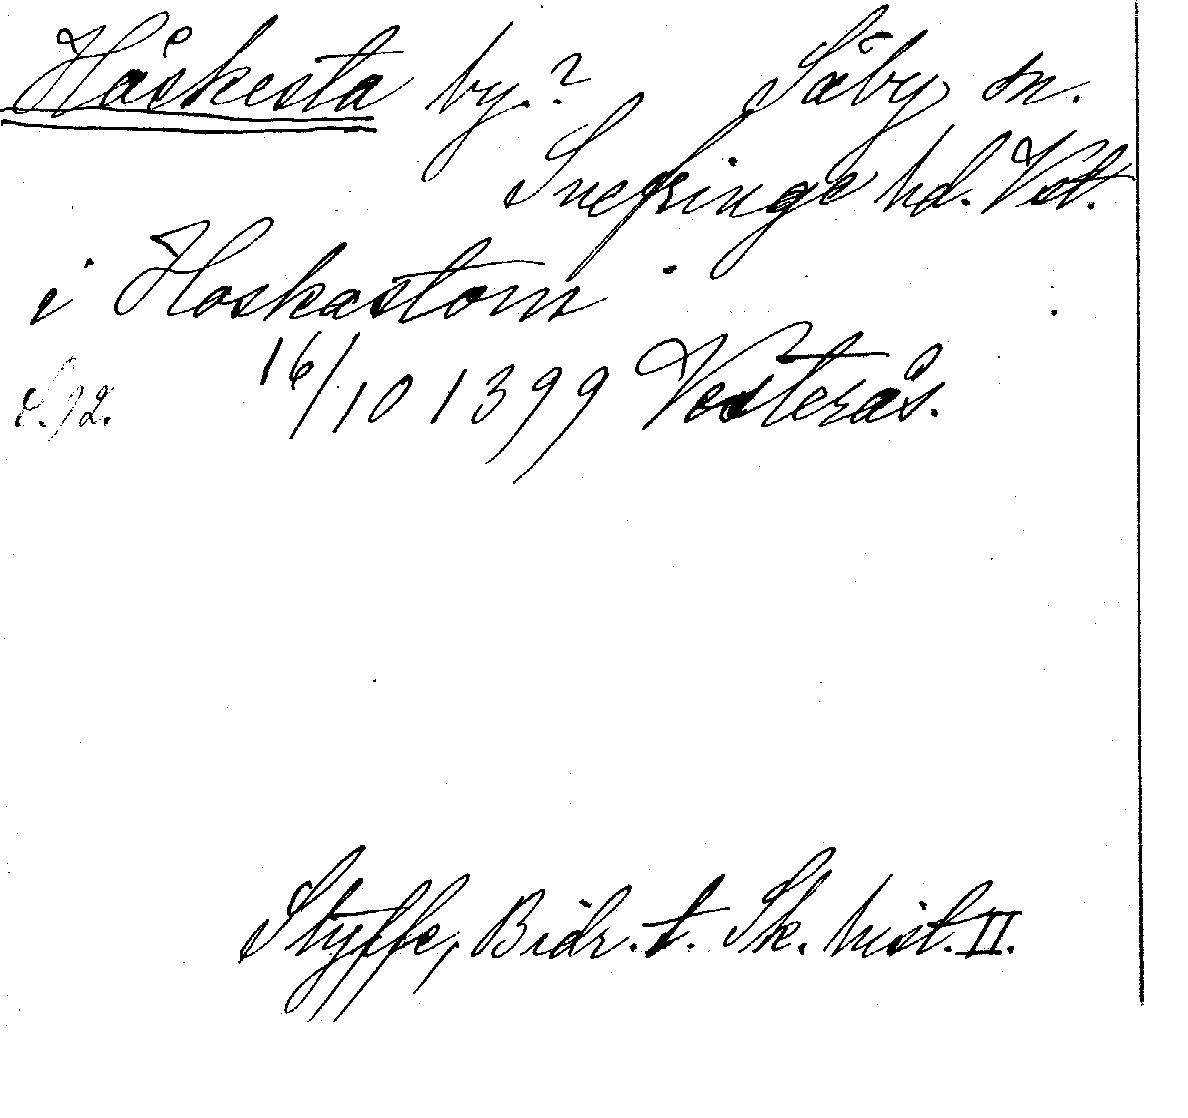 Håskesta by.? Säby sn.
Snefringe hd. Vstl.
i Hoskastom
S. 92. 16/10 1399 Vesterås.
Styffe, Bidr. t. Sk. hist. II.